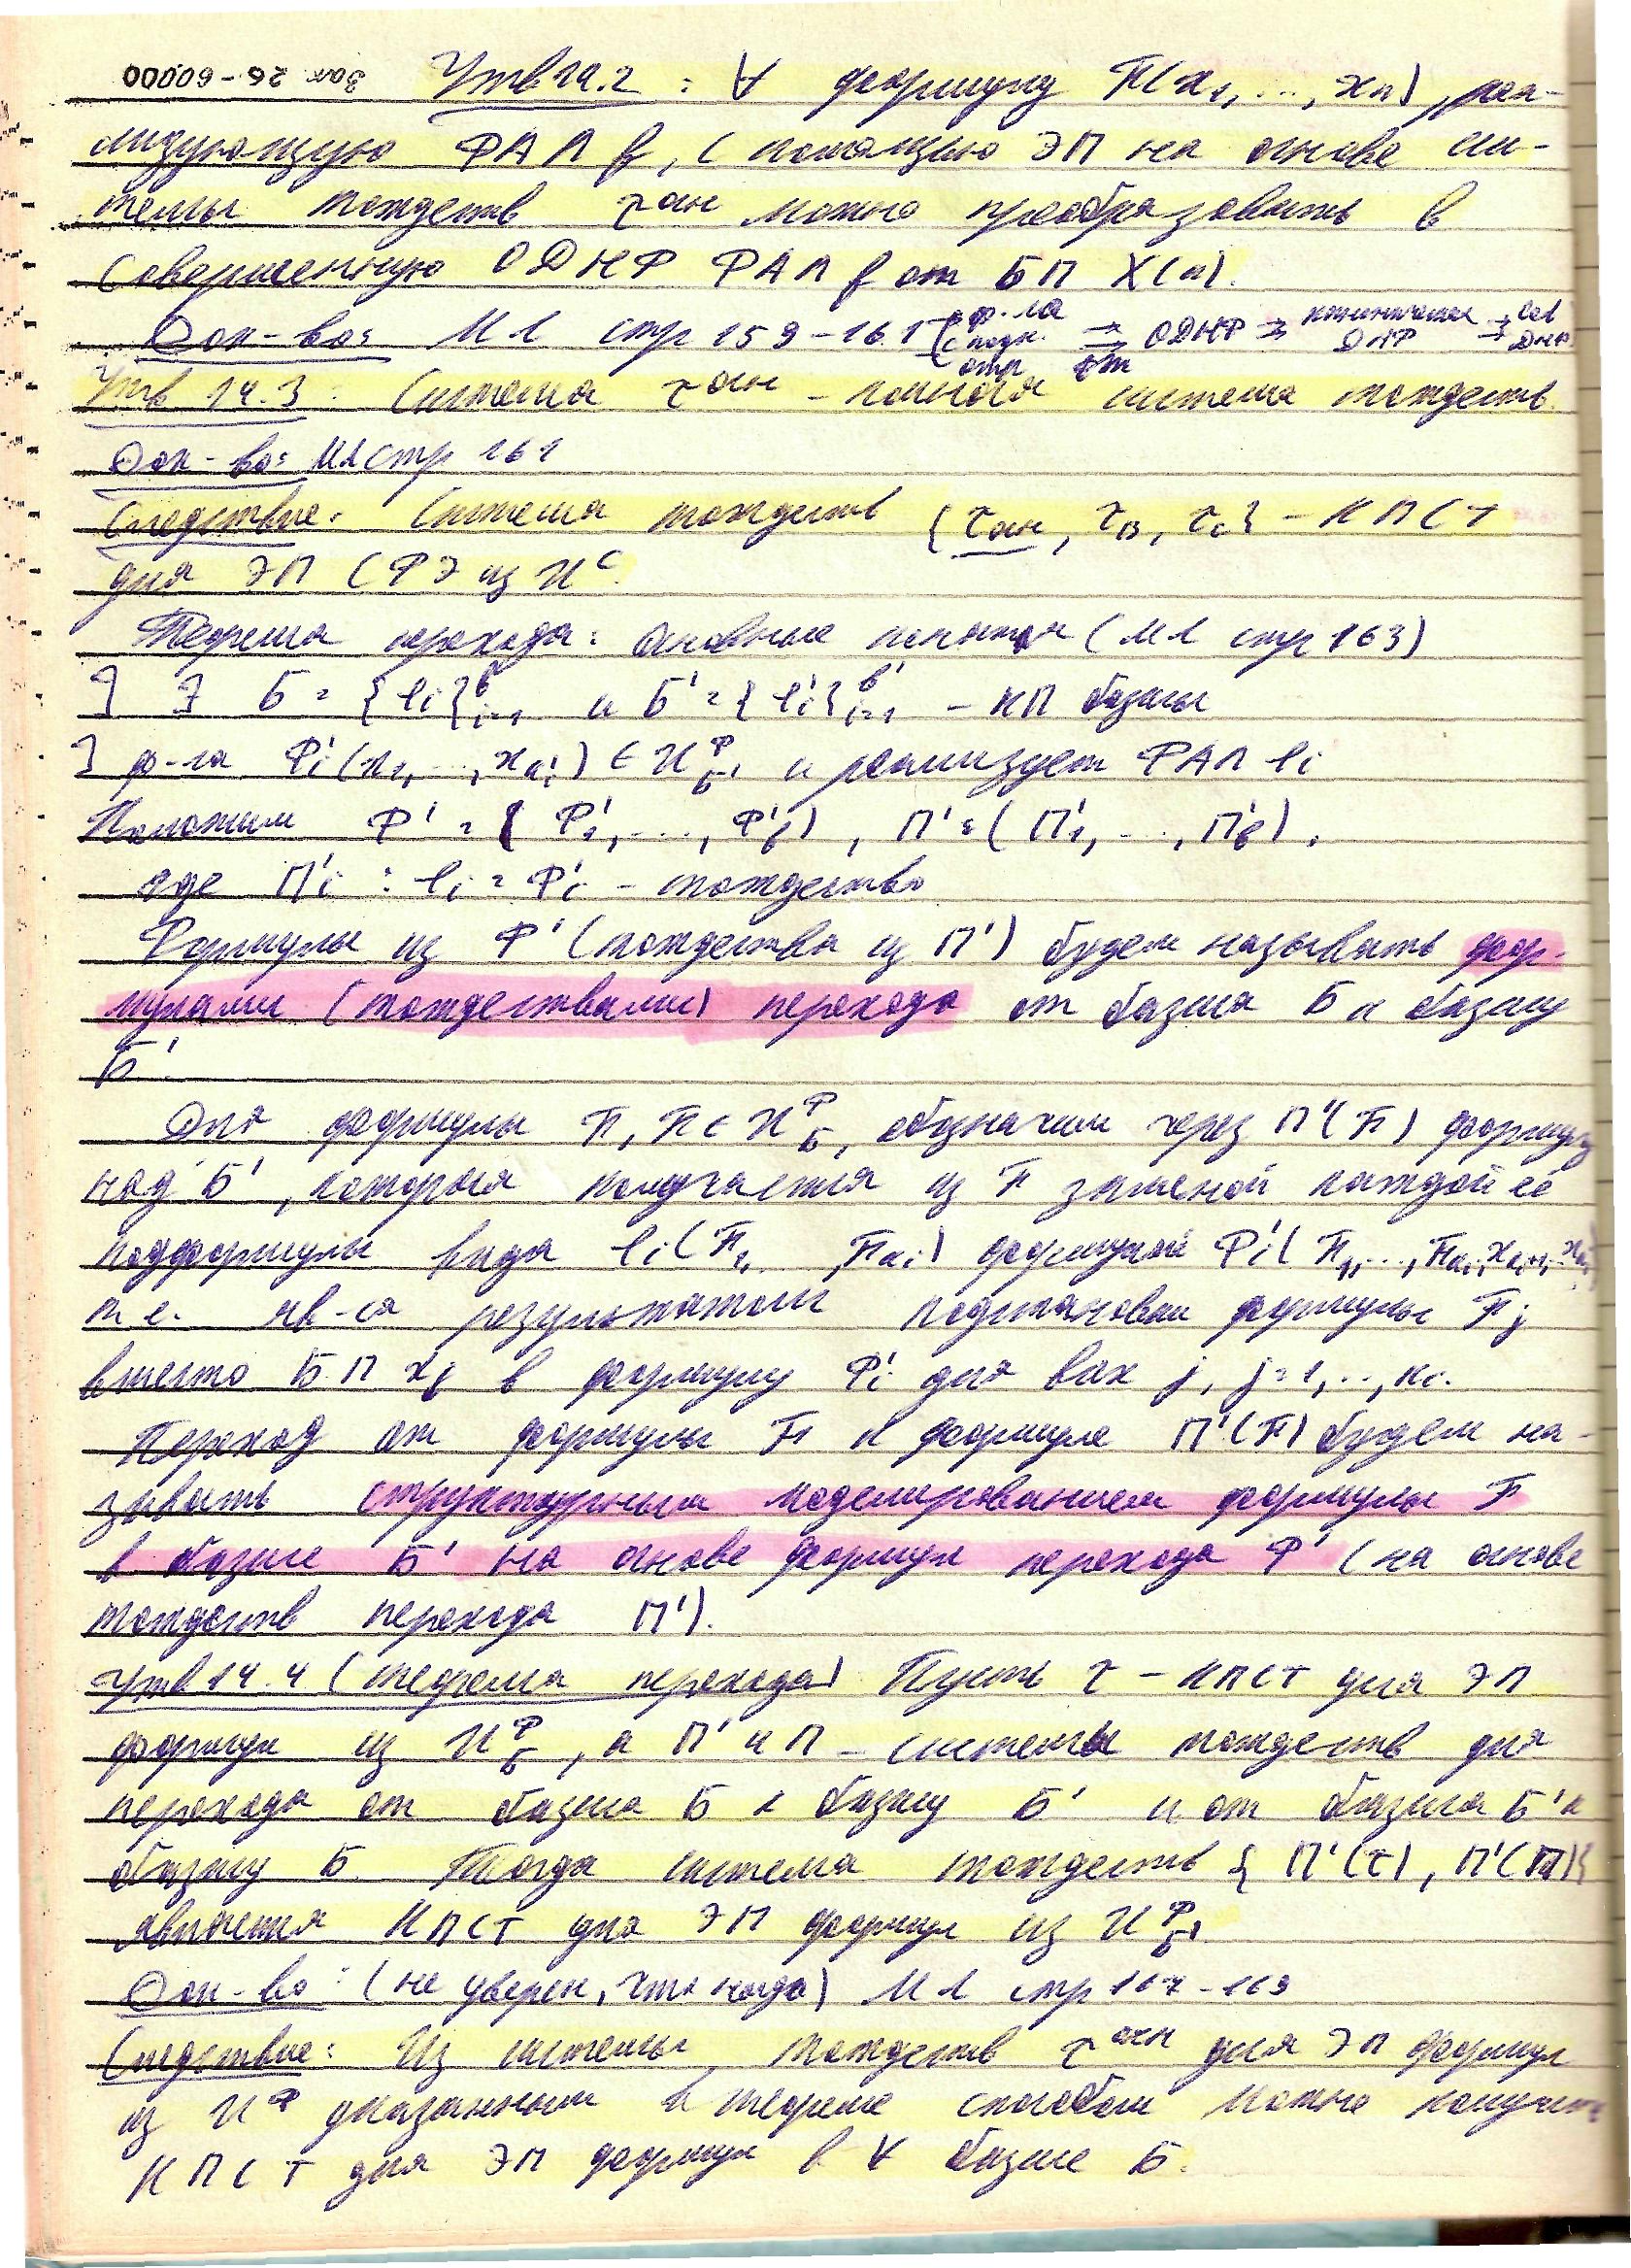 Зак 26-60000
Утв 14.2 : ∀ формулу F(x₁, ..., xₙ), реа-
лизующую ФАЛ f, с помощью ЭП на основе сис-
темы тождеств τ^осн можно преобразовать в
совершенную ОДНФ ФАЛ f от БП X(n).
Док-во: МЛ стр 159-161 (ф-ла с подн. отр ⇒ ОДНФ ⇒ каноническая ДНФ → сов ДНФ
Утв 14.3 : Система τ^осн - полная система тождеств.
Док-во: МЛ стр 161
Следствие: Система тождеств {τ^осн, τ_в, τ_с} - КПСТ
для ЭП СФЭ из U^C.
Теорема перехода: основные понятия (МЛ стр 163)
] ∃ Б = {ℓᵢ}ᵇᵢ₌₁ и Б' = {ℓ'ᵢ}ᵇ'ᵢ₌₁ - КП базисы
] ф-ла Ф'ᵢ(x₁, ..., x_kᵢ) ∈ U^Ф_Б' и реализует ФАЛ ℓᵢ
Положим Ф' = (Ф'₁, ..., Ф'_b), П' = (П'₁, ..., П'_b),
где П'ᵢ : ℓᵢ = Ф'ᵢ - тождество
Формулы из Ф' (тождества из П') будем называть фор-
мулами (тождествами) перехода от базиса Б к базису
Б'.
Для формулы F, F ∈ U^Ф_Б, обозначим через П'(F) формулу
над Б', которая получается из F заменой каждой её
подформулы вида ℓᵢ(F₁, ..., F_kᵢ) формулой Ф'ᵢ(F₁, ..., F_kᵢ,
т.е. яв-ся результатом подстановки формулы Fⱼ
вместо БП xⱼ в формулу Ф'ᵢ для всех j, j=1, ..., kᵢ.
Переход от формулы F к формуле П'(F) будем на-
зывать структурным моделированием формулы F
в базисе Б' на основе формул перехода Ф' (на основе
тождеств перехода П').
Утв 14.4 (теорема перехода) Пусть τ - КПСТ для ЭП
формул из U^Ф_Б, а П' и П - системы тождеств для
перехода от базиса Б к базису Б' и от базиса Б' к
базису Б. Тогда система тождеств {П'(τ), П'(П)}
является КПСТ для ЭП формул из U^Ф_Б'.
Док-во: (не уверен, что надо) МЛ стр 167-169
Следствие: Из системы тождеств τ^осн для ЭП формул
из U^Ф указанным в теореме способом можно получить
КПСТ для ЭП формул в ∀ базисе Б.